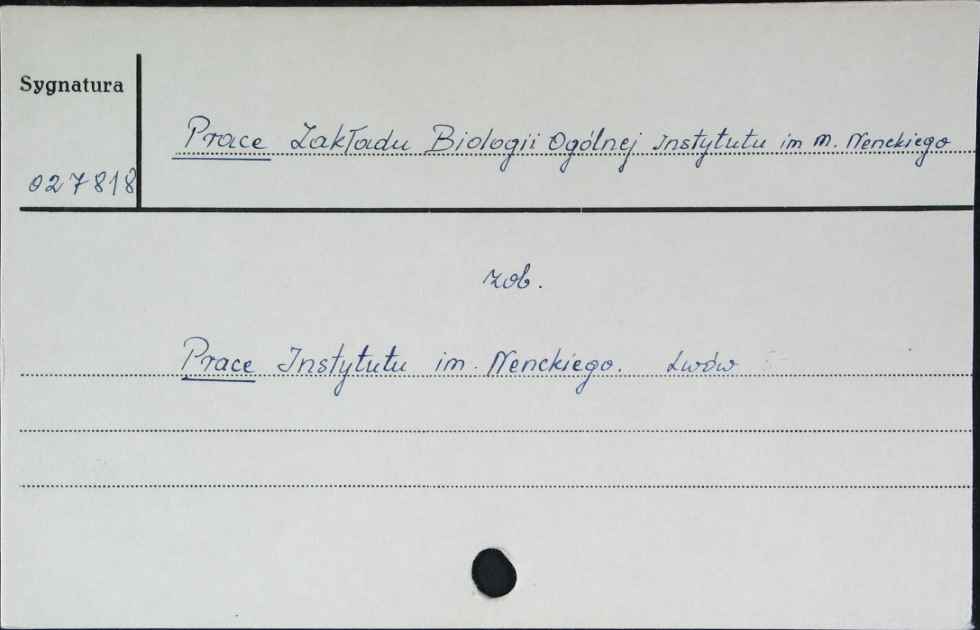 Sygnatura
Prace Zakładu Biologii Ogólnej Instytutu im M. Nenckiego
027818
zob.
Prace Instytutu im. Nenckiego. Lwów